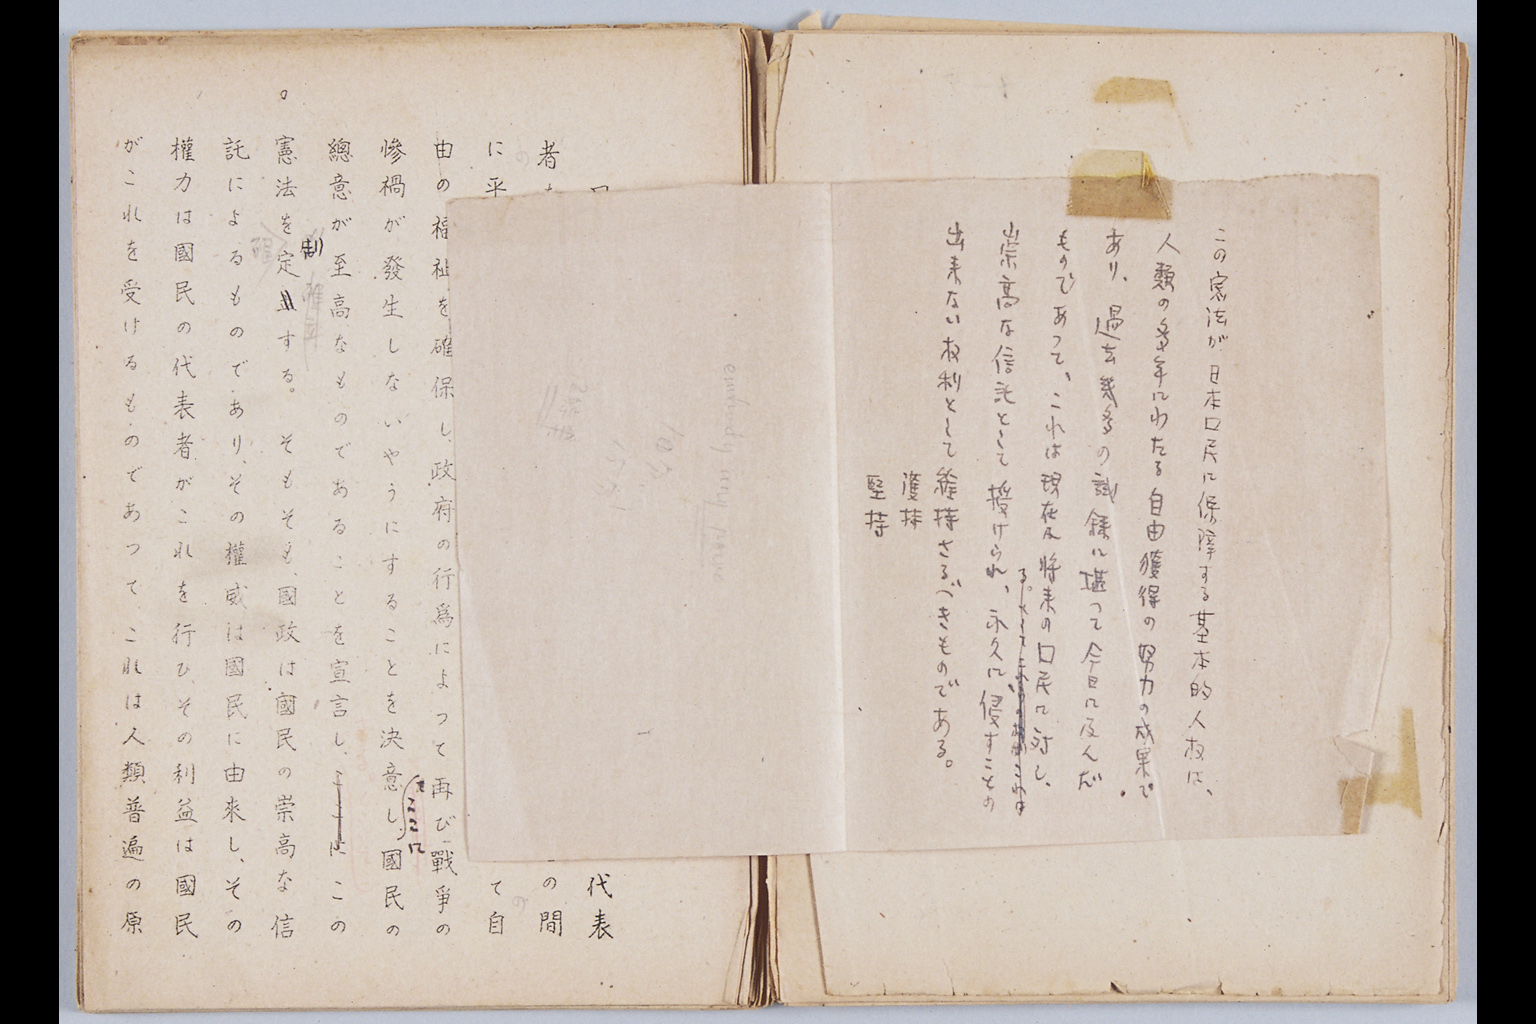 この憲法が日本口民に保障する基本的人权は、
人類の多年にわたる自由獲得の努力の成果で
あり、過去幾多の試錬に堪って今日に及んだ
ものであって、これは現在及将来の口民に対し、
崇高な信託として授けられ、永久に侵すことの
出来ない权利として維持さるべきものである。
獲持
堅持
代表
者
の間
に平
て自
由の福祉を確保し、政府の行爲によつて再び戰爭の
惨禍が發生しないやうにすることを決意し、國民の
をここに
總意が至高なものであることを宣言し、ここにこの
制
憲法を定立する。そもそも、國政は國民の崇高な信
託によるものであり、その權威は國民に由來し、その
權力は國民の代表者がこれを行ひ、その利益は國民
がこれを受けるものであつて、これは人類普遍の原